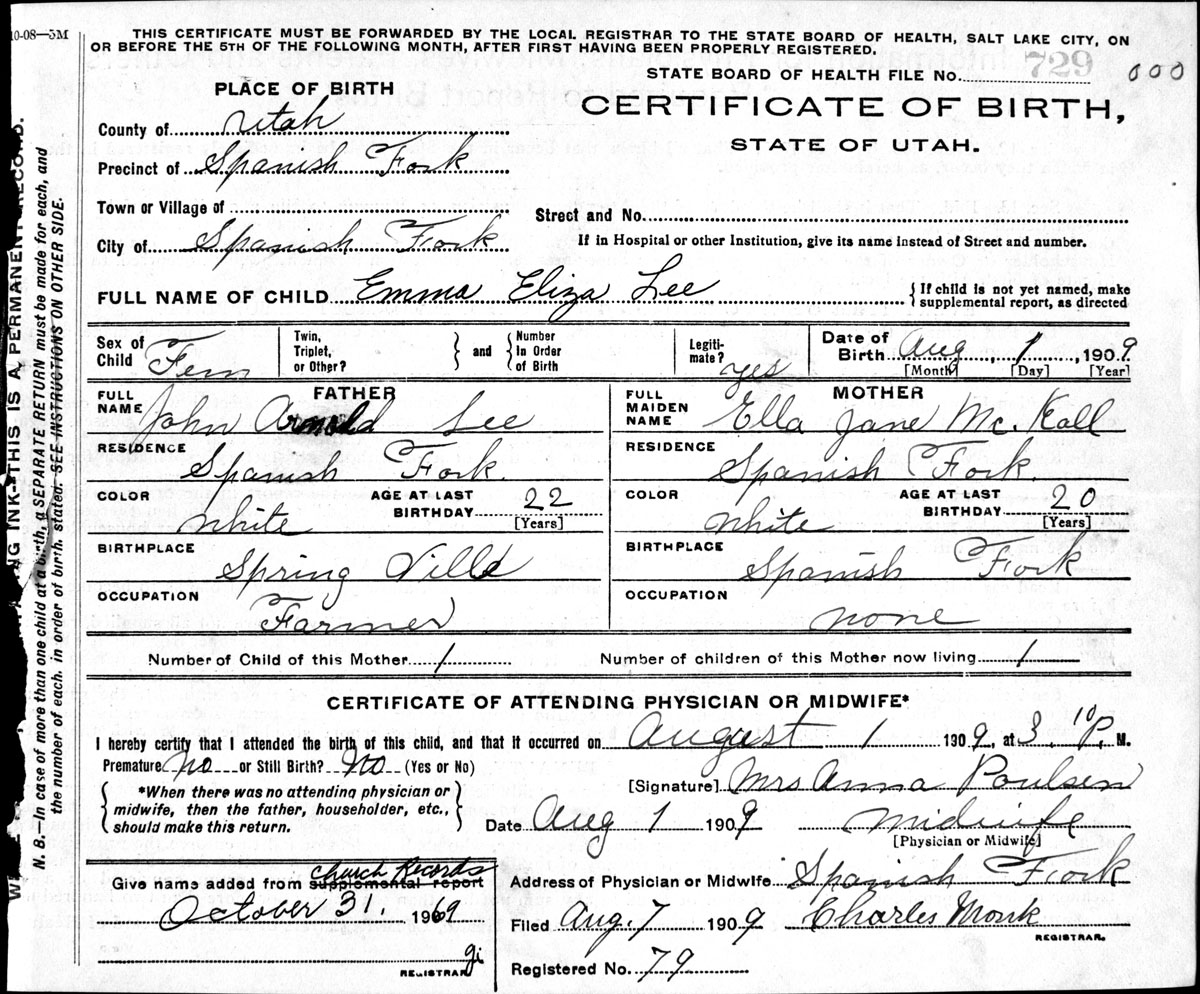 10-08—5M
THIS CERTIFICATE MUST BE FORWARDED BY THE LOCAL REGISTRAR TO THE STATE BOARD OF HEALTH, SALT LAKE CITY, ON
OR BEFORE THE 5TH OF THE FOLLOWING MONTH, AFTER FIRST HAVING BEEN PROPERLY REGISTERED.
STATE BOARD OF HEALTH FILE No. 729 000
PLACE OF BIRTH
CERTIFICATE OF BIRTH,
STATE OF UTAH.
County of Utah
Precinct of Spanish Fork
Town or Village of
Street and No.
City of Spanish Fork
If in Hospital or other Institution, give its name instead of Street and number.
FULL NAME OF CHILD Emma Eliza Lee
{If child is not yet named, make
supplemental report, as directed
Sex of Child Fem
Twin, Triplet, or Other? } and { Number In Order of Birth
Legiti-mate? yes
Date of Birth Aug, 1, 1909
[Month] [Day] [Year]
FATHER
FULL NAME John Arnold Lee
RESIDENCE Spanish Fork.
COLOR White
AGE AT LAST BIRTHDAY 22 [Years]
BIRTHPLACE Spring Ville
OCCUPATION Farmer
MOTHER
FULL MAIDEN NAME Ella Jane Mc. Kall
RESIDENCE Spanish Fork.
COLOR White
AGE AT LAST BIRTHDAY 20 [Years]
BIRTHPLACE Spanish Fork
OCCUPATION none
Number of Child of this Mother 1
Number of children of this Mother now living 1
CERTIFICATE OF ATTENDING PHYSICIAN OR MIDWIFE*
I hereby certify that I attended the birth of this child, and that it occurred on August 1 1909, at 3.10 P. M.
Premature No or Still Birth? No (Yes or No)
{*When there was no attending physician or
midwife, then the father, householder, etc.,
should make this return.}
[Signature] Mrs Anna Poulsen
Date Aug 1 1909
Midwife
[Physician or Midwife]
Give name added from supplemental report Church Records
October 31. 1969
gi
REGISTRAR
Address of Physician or Midwife Spanish Fork
Filed Aug. 7 1909 Charles Monk
REGISTRAR.
Registered No. 79
ING INK—THIS IS A PERMANENT RECORD.
N. B.—In case of more than one child at a birth, a SEPARATE RETURN must be made for each, and
the number of each, in order of birth, stated. SEE INSTRUCTIONS ON OTHER SIDE.